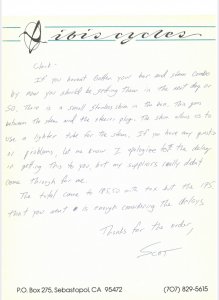 ibis cycles
Clark -
If you havent gotten your bar and stem combo
by now you should be getting them in the next day or
so. There is a small stainless shim in the box. This goes
between the stem and the bar plug. The shim allows us to
use a lighter tube for the stem. If you have any questions
or problems, let me know. I apologize for the delay
in getting this to you, but my suppliers really didnt
come through for me.
The total came to with tax but the 175.
that you sent is enough considering the delays
Thanks for the order,
Scot
P.O. Box 275, Sebastopol, CA 95472 (707) 829-5615